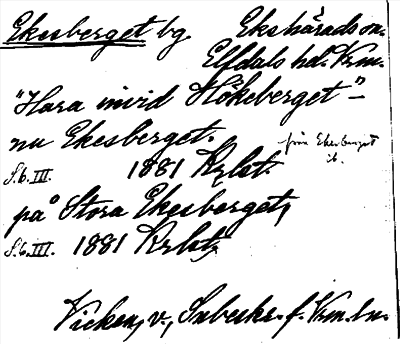 Ekesberget bg. Ekshärads sn.
Elfdals hd. Vrm.
"Hara invid Hökeberget" -
nu Ekesberget.
från Ekesberget
ib.
S.6.III. 1881 Krlst.
på Stora Ekesberget,
S.6.III. 1881 Krlst,
Vicken, v., Inbeskr. f. Vrm. ln.